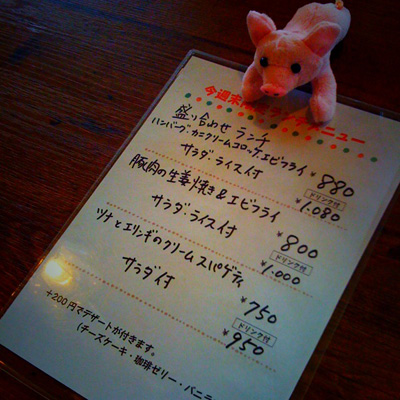 今週末
メニュー
盛り合わせ ランチ
ハンバーグ・カニクリームコロッケ・エビフライ
サラダ・ライス付
¥880
ドリンク付
¥1.080
豚肉の生姜焼き&エビフライ
サラダ・ライス付
¥800
ドリンク付
¥1.000
ツナとエリンギのクリームスパゲティ
サラダ付
¥750
ドリンク付
¥950
+200円でデザートが付きます。
(チーズケーキ・珈琲ゼリー・バニラ